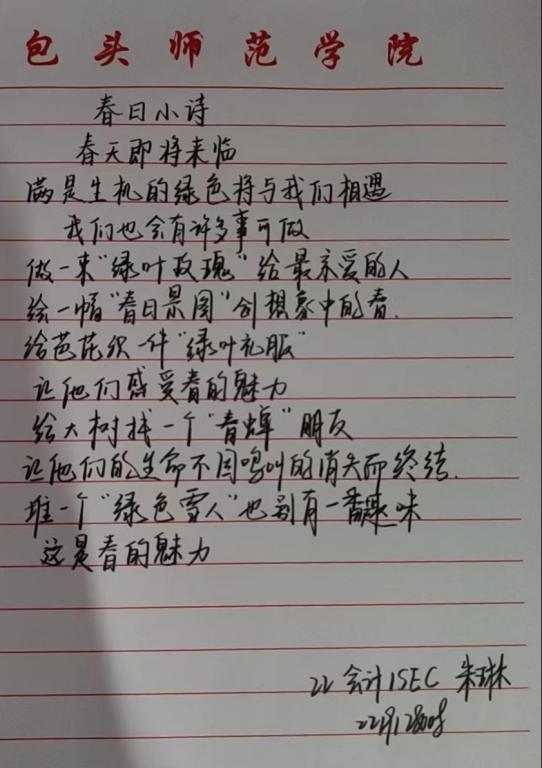 包头师范学院
春日小诗
春天即将来临
满是生机的绿色将与我们相遇
我们也会有许多事可做
做一束“绿叶玫瑰”给最亲爱的人
绘一幅“春日景图”创想象中的春.
给芭芘织一件“绿叶礼服”
让他们感受春的魅力
给大树找一个“春蝉”朋友
让他们的生命不因鸣叫的消失而终结.
堆一个“绿色雪人”也别有一番趣味
这是春的魅力
22会计ISEC 朱琳